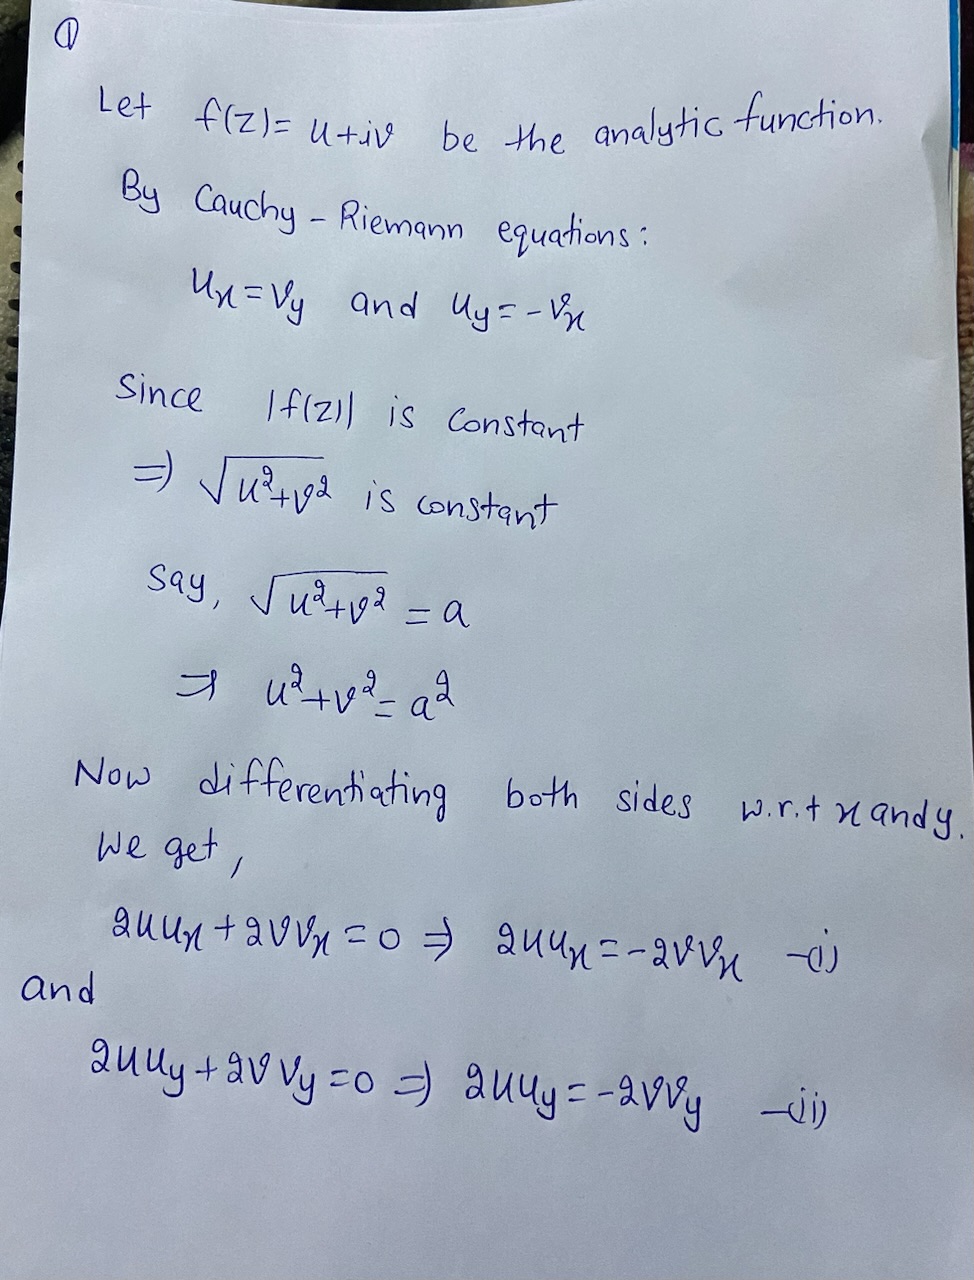 ①
Let f(z) = u+iv be the analytic function.
By Cauchy - Riemann equations:
uₓ = vᵧ and uᵧ = -vₓ
Since |f(z)| is constant
⇒ √(u²+v²) is constant
Say, √(u²+v²) = a
⇒ u²+v² = a²
Now differentiating both sides w.r.t x and y.
We get,
2uuₓ + 2vvₓ = 0 ⇒ 2uuₓ = -2vvₓ -(i)
and
2uuᵧ + 2vvᵧ = 0 ⇒ 2uuᵧ = -2vvᵧ -(ii)